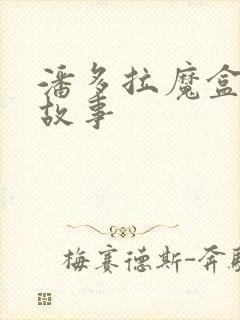 潘多拉魔盒
故事
梅赛德斯-奔